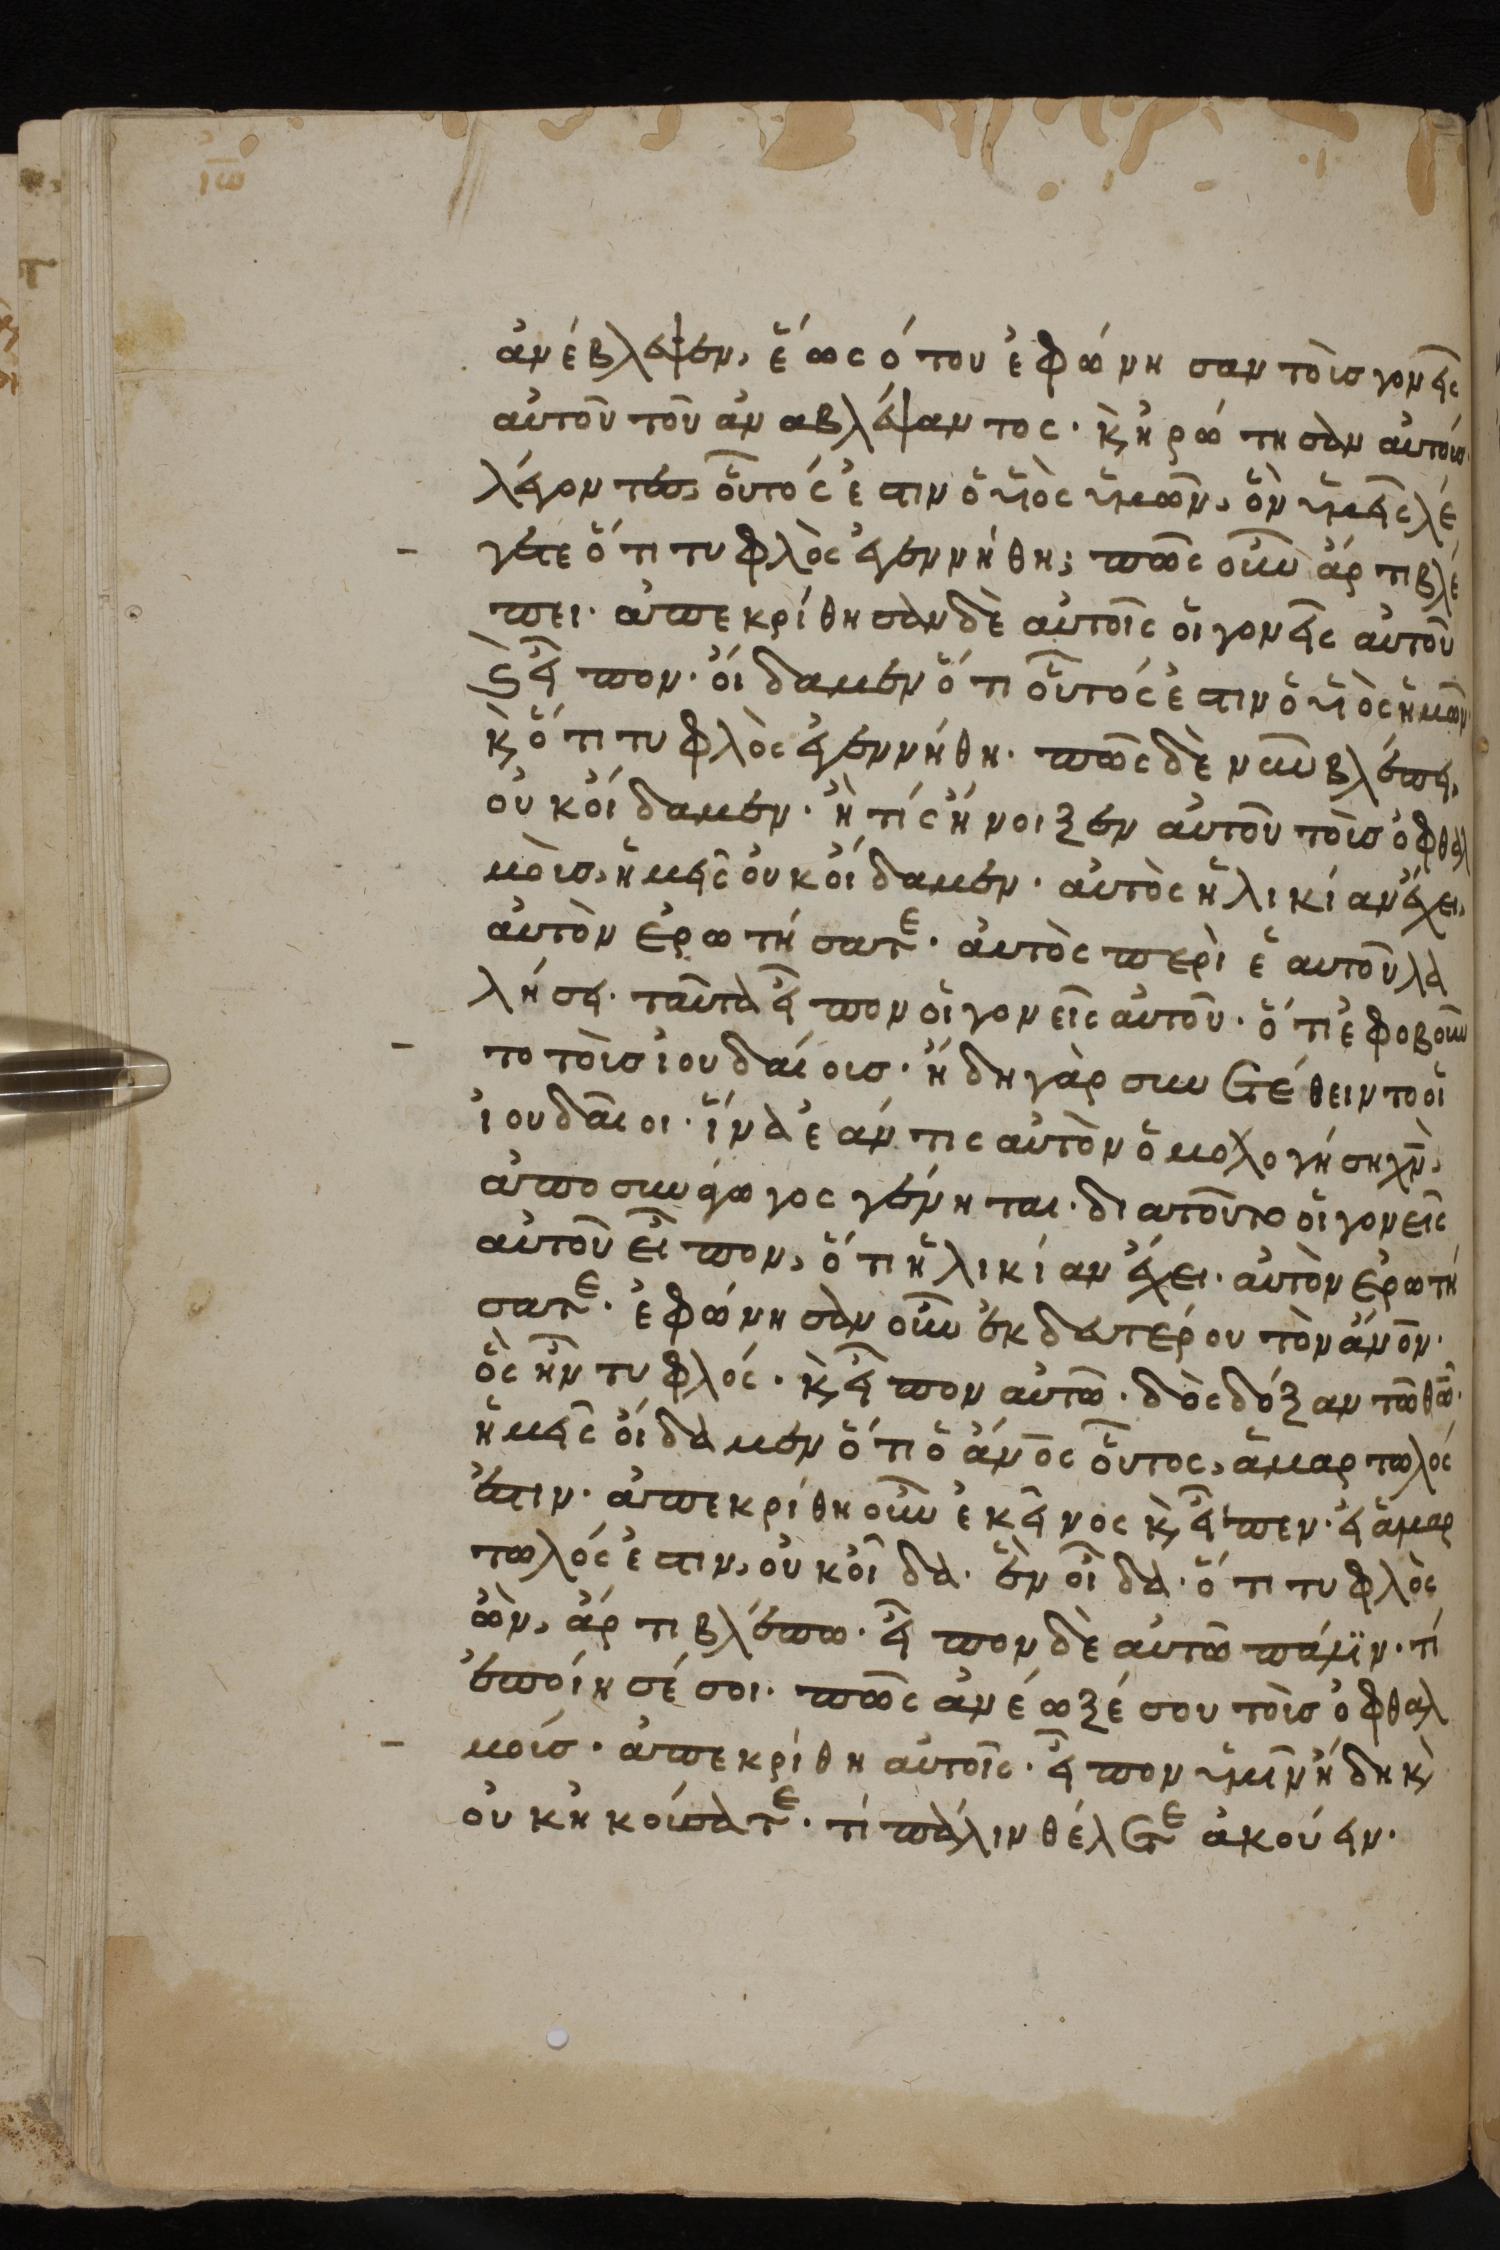 ιω
ἀνέβλεψεν, ἕως ὅτου ἐφώνησαν τοὺς γονεῖς
αὐτοῦ τοῦ ἀναβλέψαντος· κ̀ ἠρώτησαν αὐτοὺς
λέγοντες, οὗτός ἐστιν ὁ υἱὸς ὑμῶν, ὃν ὑμεῖς λέ
γετε ὅτι τυφλὸς ἐγεννήθη; πῶς οὖν ἄρτι βλέ
πει· ἀπεκρίθησαν δὲ αὐτοῖς οἱ γονεῖς αὐτοῦ
κ̀ εἶπον· οἴδαμεν ὅτι οὗτός ἐστιν ὁ υἱὸς ἡμῶν
κ̀ ὅτι τυφλὸς ἐγεννήθη· πῶς δὲ νῦν βλέπει,
οὐκ οἴδαμεν· ἢ τίς ἤνοιξεν αὐτοῦ τοὺς ὀφθαλ
μοὺς, ἡμεῖς οὐκ οἴδαμεν· αὐτὸς ἡλικίαν ἔχει,
αὐτὸν ἐρωτήσατε· αὐτὸς περὶ ἑαυτοῦ λα
λήσει· ταῦτα εἶπον οἱ γονεῖς αὐτοῦ· ὅτι ἐφοβοῦν
το τοὺς ἰουδαίους· ἤδη γὰρ συνετέθειντο οἱ
ἰουδαῖοι· ἵνα ἐάν τις αὐτὸν ὁμολογήση χν̅,
ἀποσυνάγωγος γένηται· διατοῦτο οἱ γονεῖς
αὐτοῦ εἶπον, ὅτι ἡλικίαν ἔχει· αὐτὸν ἐρωτή
σατε· ἐφώνησαν οὖν ἐκ δευτέρου τὸν ἄνο̅ν·
ὃς ἦν τυφλός· κ̀ εἶπον αὐτῶ· δὸς δόξαν τῶ θω̅·
ἡμεῖς οἴδαμεν ὅτι ὁ ἄνο̅ς οὗτος, ἁμαρτωλός
ἐστιν· ἀπεκρίθη οὖν ἐκεῖνος κ̀ εἶπεν· εἰ ἁμαρ
τωλός ἐστιν, οὐκ οἶδα· ἓν οἶδα· ὅτι τυφλὸς
ὢν, ἄρτι βλέπω· εἶπον δὲ αὐτῶ πάλιν· τί
ἐποίησέ σοι· πῶς ἀνέωξέ σου τοὺς ὀφθαλ
μούς· ἀπεκρίθη αὐτοῖς· εἶπον ὑμῖν ἤδη κ̀
οὐκ ἠκούσατε· τί πάλιν θέλετε ἀκούειν·